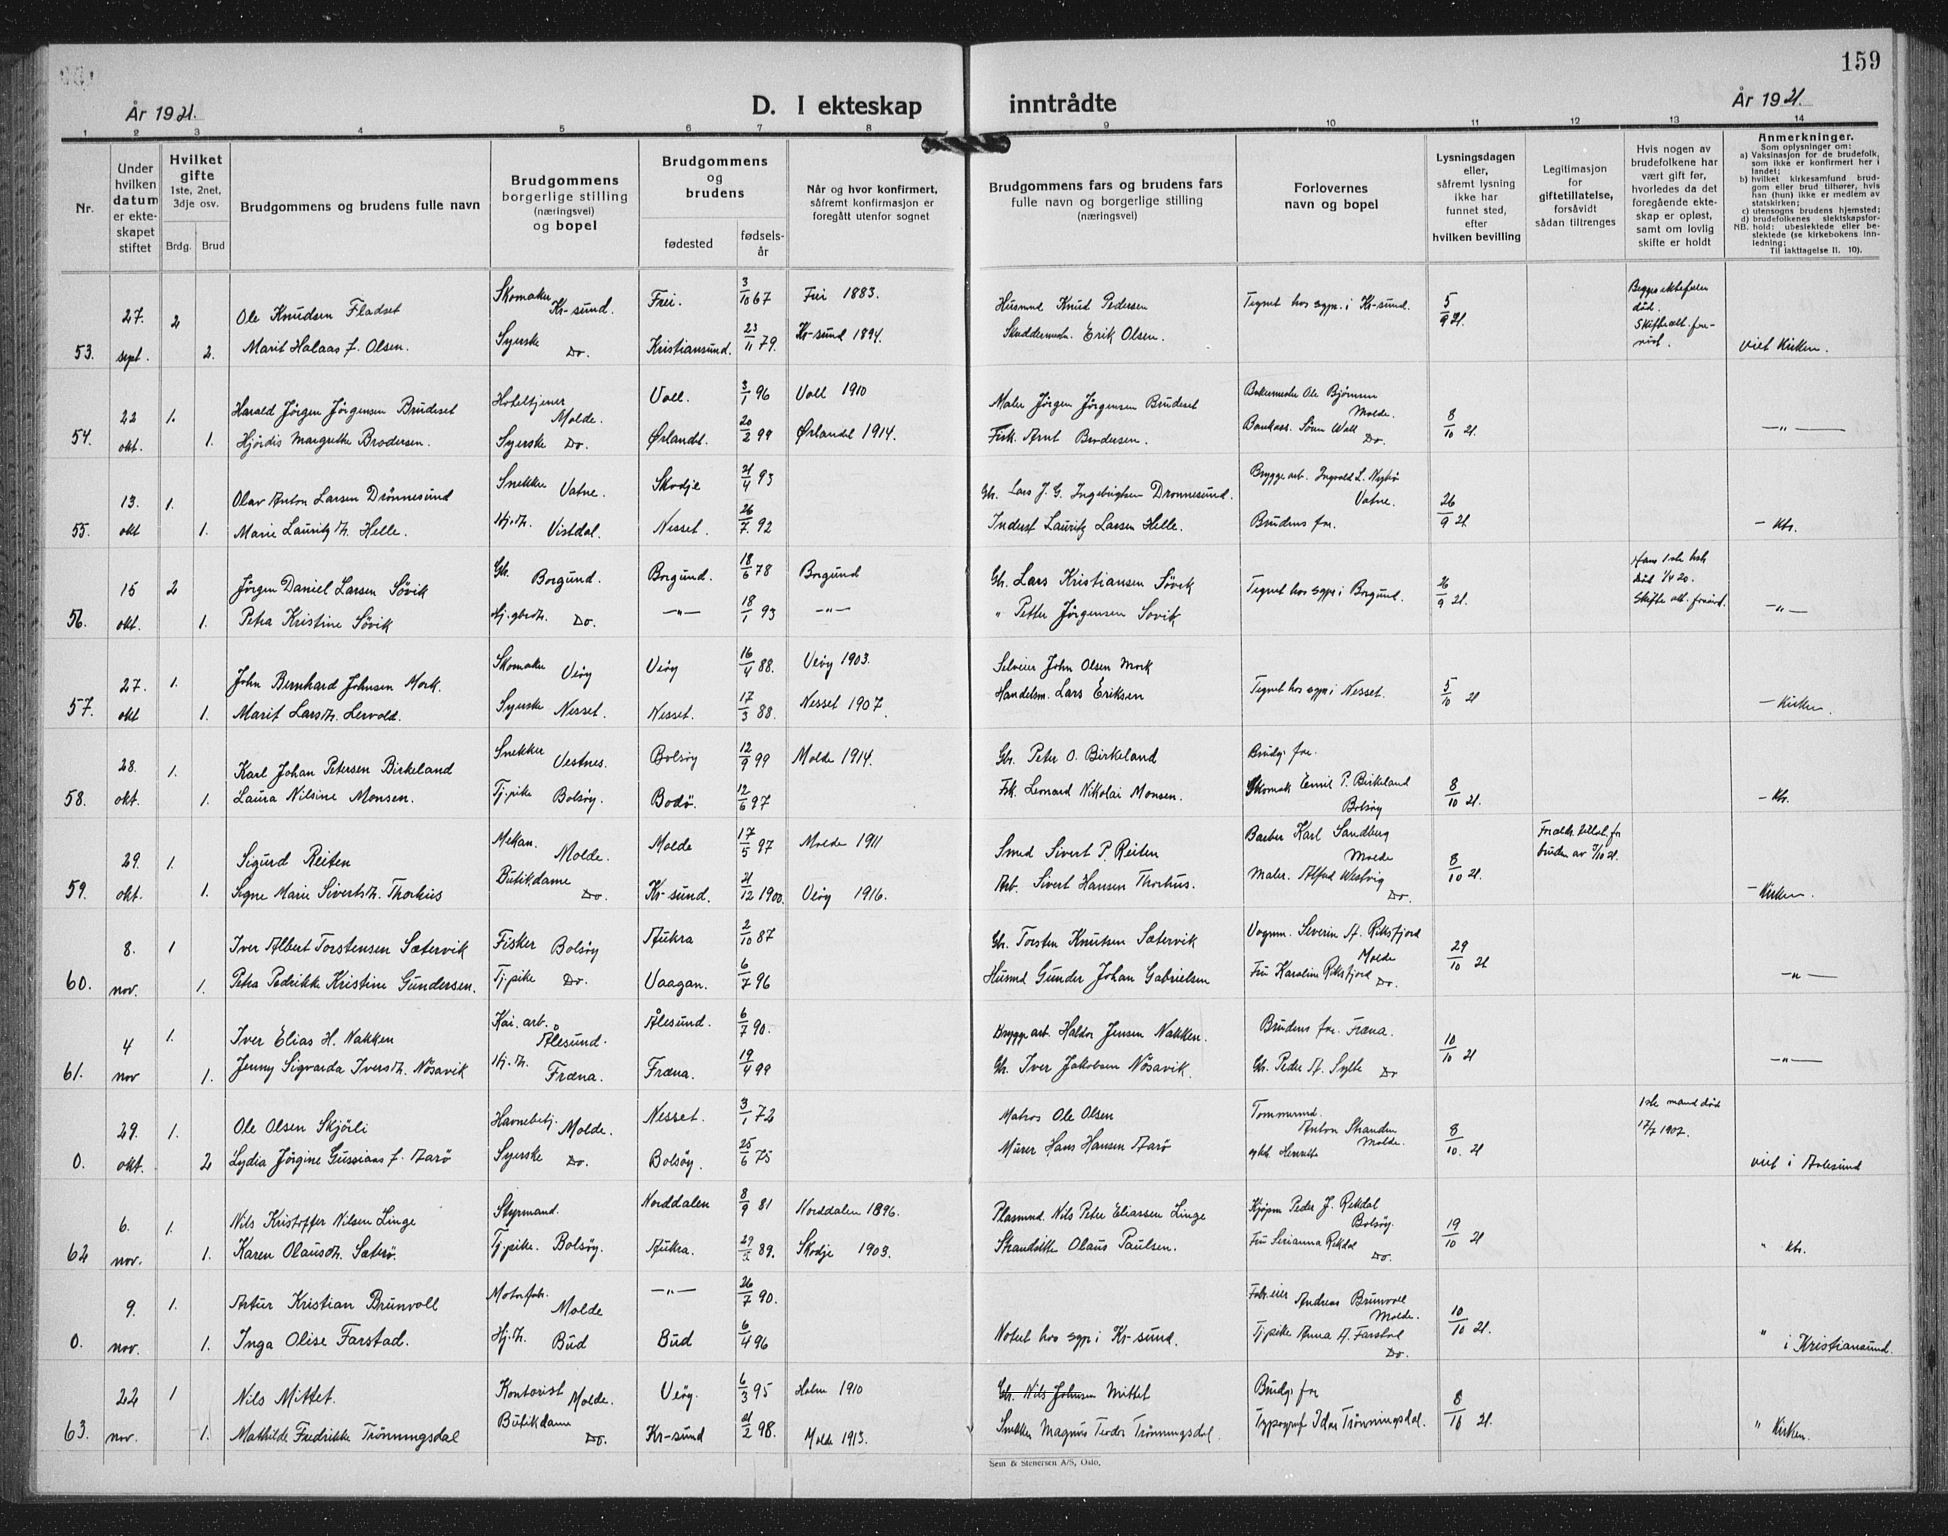 159
År 1921.
D. I ekteskap inntrådte
År 1921.
1 2 3 4 5 6 7 8 9 10 11 12 13 14
Nr.
Under hvilken datum er ekteskapet stiftet
Hvilket gifte 1ste, 2net, 3dje osv.
Brdg. Brud
Brudgommens og brudens fulle navn
Brudgommens borgerlige stilling (næringsvei) og bopel
Brudgommens og brudens
fødested fødselsår
Når og hvor konfirmert, såfremt konfirmasjon er foregått utenfor sognet
Brudgommens fars og brudens fars fulle navn og borgerlige stilling (næringsvei)
Forlovernes navn og bopel
Lysningsdagen eller, såfremt lysning ikke har funnet sted, efter hvilken bevilling
Legitimasjon for giftetillatelse, forsåvidt sådan tiltrenges
Hvis nogen av brudefolkene har vært gift før, hvorledes da det foregående ekteskap er opløst, samt om lovlig skifte er holdt
Anmerkninger.
Som oplysninger om:
a) Vaksinasjon for de brudefolk, som ikke er konfirmert her i landet;
b) hvilket kirkesamfund brudgom eller brud tilhører, hvis han (hun) ikke er medlem av statskirken;
c) utensogns brudens hjemsted;
d) brudefolkenes slektskapsforhold: ubeslektede eller beslektede (se kirkebokens innledning;
NB.
Til iakttagelse ll. 10).
27. 2 Ole Knudsen Fladset Skomaker Kr-sund. Frei. 3/10 67 Frei 1883. Husmnd Knud Pedersen Tegnet hos sgpr. i Kr-sund. 5/9 21. Begges ektefeller død. Skifteatt. forevist.
53. sept. 2. Marit Halaas f. Olsen. Syerske Do. Kristiansund. 23/11 79. Kr-sund 1894. Skuddermstr. Erik Olsen. Viet Kirken.
22 1. Harald Jörgen Jörgensen Brudeset Hoteltjener Molde. Voll. 3/1 96 Voll 1910 Maler Jörgen Jörgensen Brudeset Bakermester Ole Björnsen Molde. 8/10 21.
54. okt. 1. Hjördis Margrethe Brodersen. Syerske Do. Ørlandet. 20/2 99 Ørlandet 1914. Fisk. Arnt Brodersen. Bankass. Sören Wall Do. —"—
13. 1. Olav Anton Larsen Drönnesund Snekker Vatne. Skodje 21/4 93 Gbr. Lars J. G. Ingebrigtsen Dronnesund. Brygge arb. Ingvald L. Nybö Vatne. 26/9 21.
55. okt 1. Marie Lauritz dt. Helle. Hj. dt. Vistdal. Nesset. 26/7. 92 Inderst Lauritz Larsen Helle. Brudens far. - Ktr.
15 2 Jörgen Daniel Larsen Sövik Gbr. Borgund. Borgund. 18/6 78 Borgund Gbr. Lars Kristiansen Sövik Tegnet hos sgpr i Borgund. 26/9 21. Hans 1ste hustr. död 1/4 20. Skifte att. fremv.
56. okt. 1. Petra Kristine Sövik Hj. gbrdt. Do. —"— 18/1 93 —"— " Petter Jörgensen Sovik —"—
27. 1. John Bernhard Johnsen Mork. Skomaker Veöy Veöy 16/4 88. Veöy 1903. Selveier John Olsen Mork Tegnet hos sgpr i Nesset. 5/10 21
57. okt 1. Marit Larsdt. Lervold. Syerske Nesset. Nesset. 17/3 88. Nesset 1907. Handelsm. Lars Eriksen - Kirken.
28. 1. Karl Johan Petersen Birkeland Snekker Vestnes. Bolsöy 12/9 99 Molde 1914. Gbr. Peter O. Birkeland Brudg. far.
58. okt. 1. Laura Nilsine Monsen. Tj. pike Bolsöy. Bodö. 12/6 97 Fisk. Leonard Nikolai Monsen. Skomak Emil P. Birkeland Bolsöy 8/10 21. - Ktr.
29. 1. Sigurd Reiten Mekan. Molde. Molde 17/5 97 Molde 1911 Smed Sivert P. Reiten Barber Karl Sandberg Molde 8/10 21. Foreldr. tillat. for bruden av 7/10 21.
59. okt. 1. Signe Marie Sivertsdt. Thorhus Butikdame Do. Kr-sund. 21/12 1900. Veöy 1916. Arb. Sivert Hansen Thorhus. Maler. Alfred Westvig Do. - Kirken.
8. 1 Iver Albert Torstensen Sætervik Fisker Bolsöy Aukra 2/10 87 Gbr. Torsten Knutsen Sætervik Vognm. Severin A. Riksfjord Molde 29/10 21
60. nov. 1. Petra Pedrikke Kristine Gundersen. Tj. pike Do. Vaagan. 6/7 96 Husmd Gunder Johan Gabrielsen Fru Karoline Riksfjord Do. —"—
4 1. Iver Elias H. Nakken Kai. arb. Ålesund. Ålesund. 6/7 90. Brygge arb. Haldor Jensen Nakken. Brudens far. Fræna. 10/10 21
61. nov 1. Jenny Sigvarda Iversdt. Nösavik Hj. dt. Fræna. Fræna. 19/4 99 Gbr. Iver Jakobsen Nösavik. Gbr. Peder A. Sylte Do —"—
29. 1. Ole Olsen Skjörli Havnebetj. Molde. Nesset. 3/1 72 Matros Ole Olsen Tommermd. Anton Stranden Molde. 8/10. 21 1ste mand död 17/7 1907.
0. okt. 2 Lydia Jörgine Gussiaas f. Aarö Syerske Do. Bolsöy. 25/6 75 Murer Hans Hansen Aarö viet i Aalesund
6. 1. Nils Kristoffer Nilsen Linge Styrmand. Norddalen 8/9 81 Norddalen 1896. Plasmnd. Nils Peter Eliassen Linge Kjöpm Peder J. Rekdal Bolsöy. 19/10 21
62 nov. 1. Karen Olausdt. Sæterö. Tj. pike. Bolsöy. Aukra. 29/2 89. Skodje 1903. Strandsitter Olaus Paulsen. Fru Serianna Rekdal Do. " Ktr.
9. 1. Artur Kristian Brunvoll Motorfabr. Molde —"— 26/7 90. Fabr. eier Andreas Brunvoll Molde. 10/10 21.
0. nov. 1. Inga Olise Farstad. Hj. dt. Bud Bud 6/4 96 Notert hos sgpr i Kr-sund. Tj. pike Anna A. Farstad Do. " i Kristiansund.
22 1 Nils Mittet. Kontorist Molde. Veöy. 6/3 95 Holm 1910 Gbr. Nils Johnsen Mittet Brudg. far 8/10 21.
63. nov. 1. Mathilde Fredrikke Trönningsdal Butikdame Do. Kr-sund 21/2 98. Molde 1913. Snekker Magnus Teodor Trönningsdal. Typograf Idar Trönningsdal. " Kirken.
Sem & Stenersen A/S, Oslo.